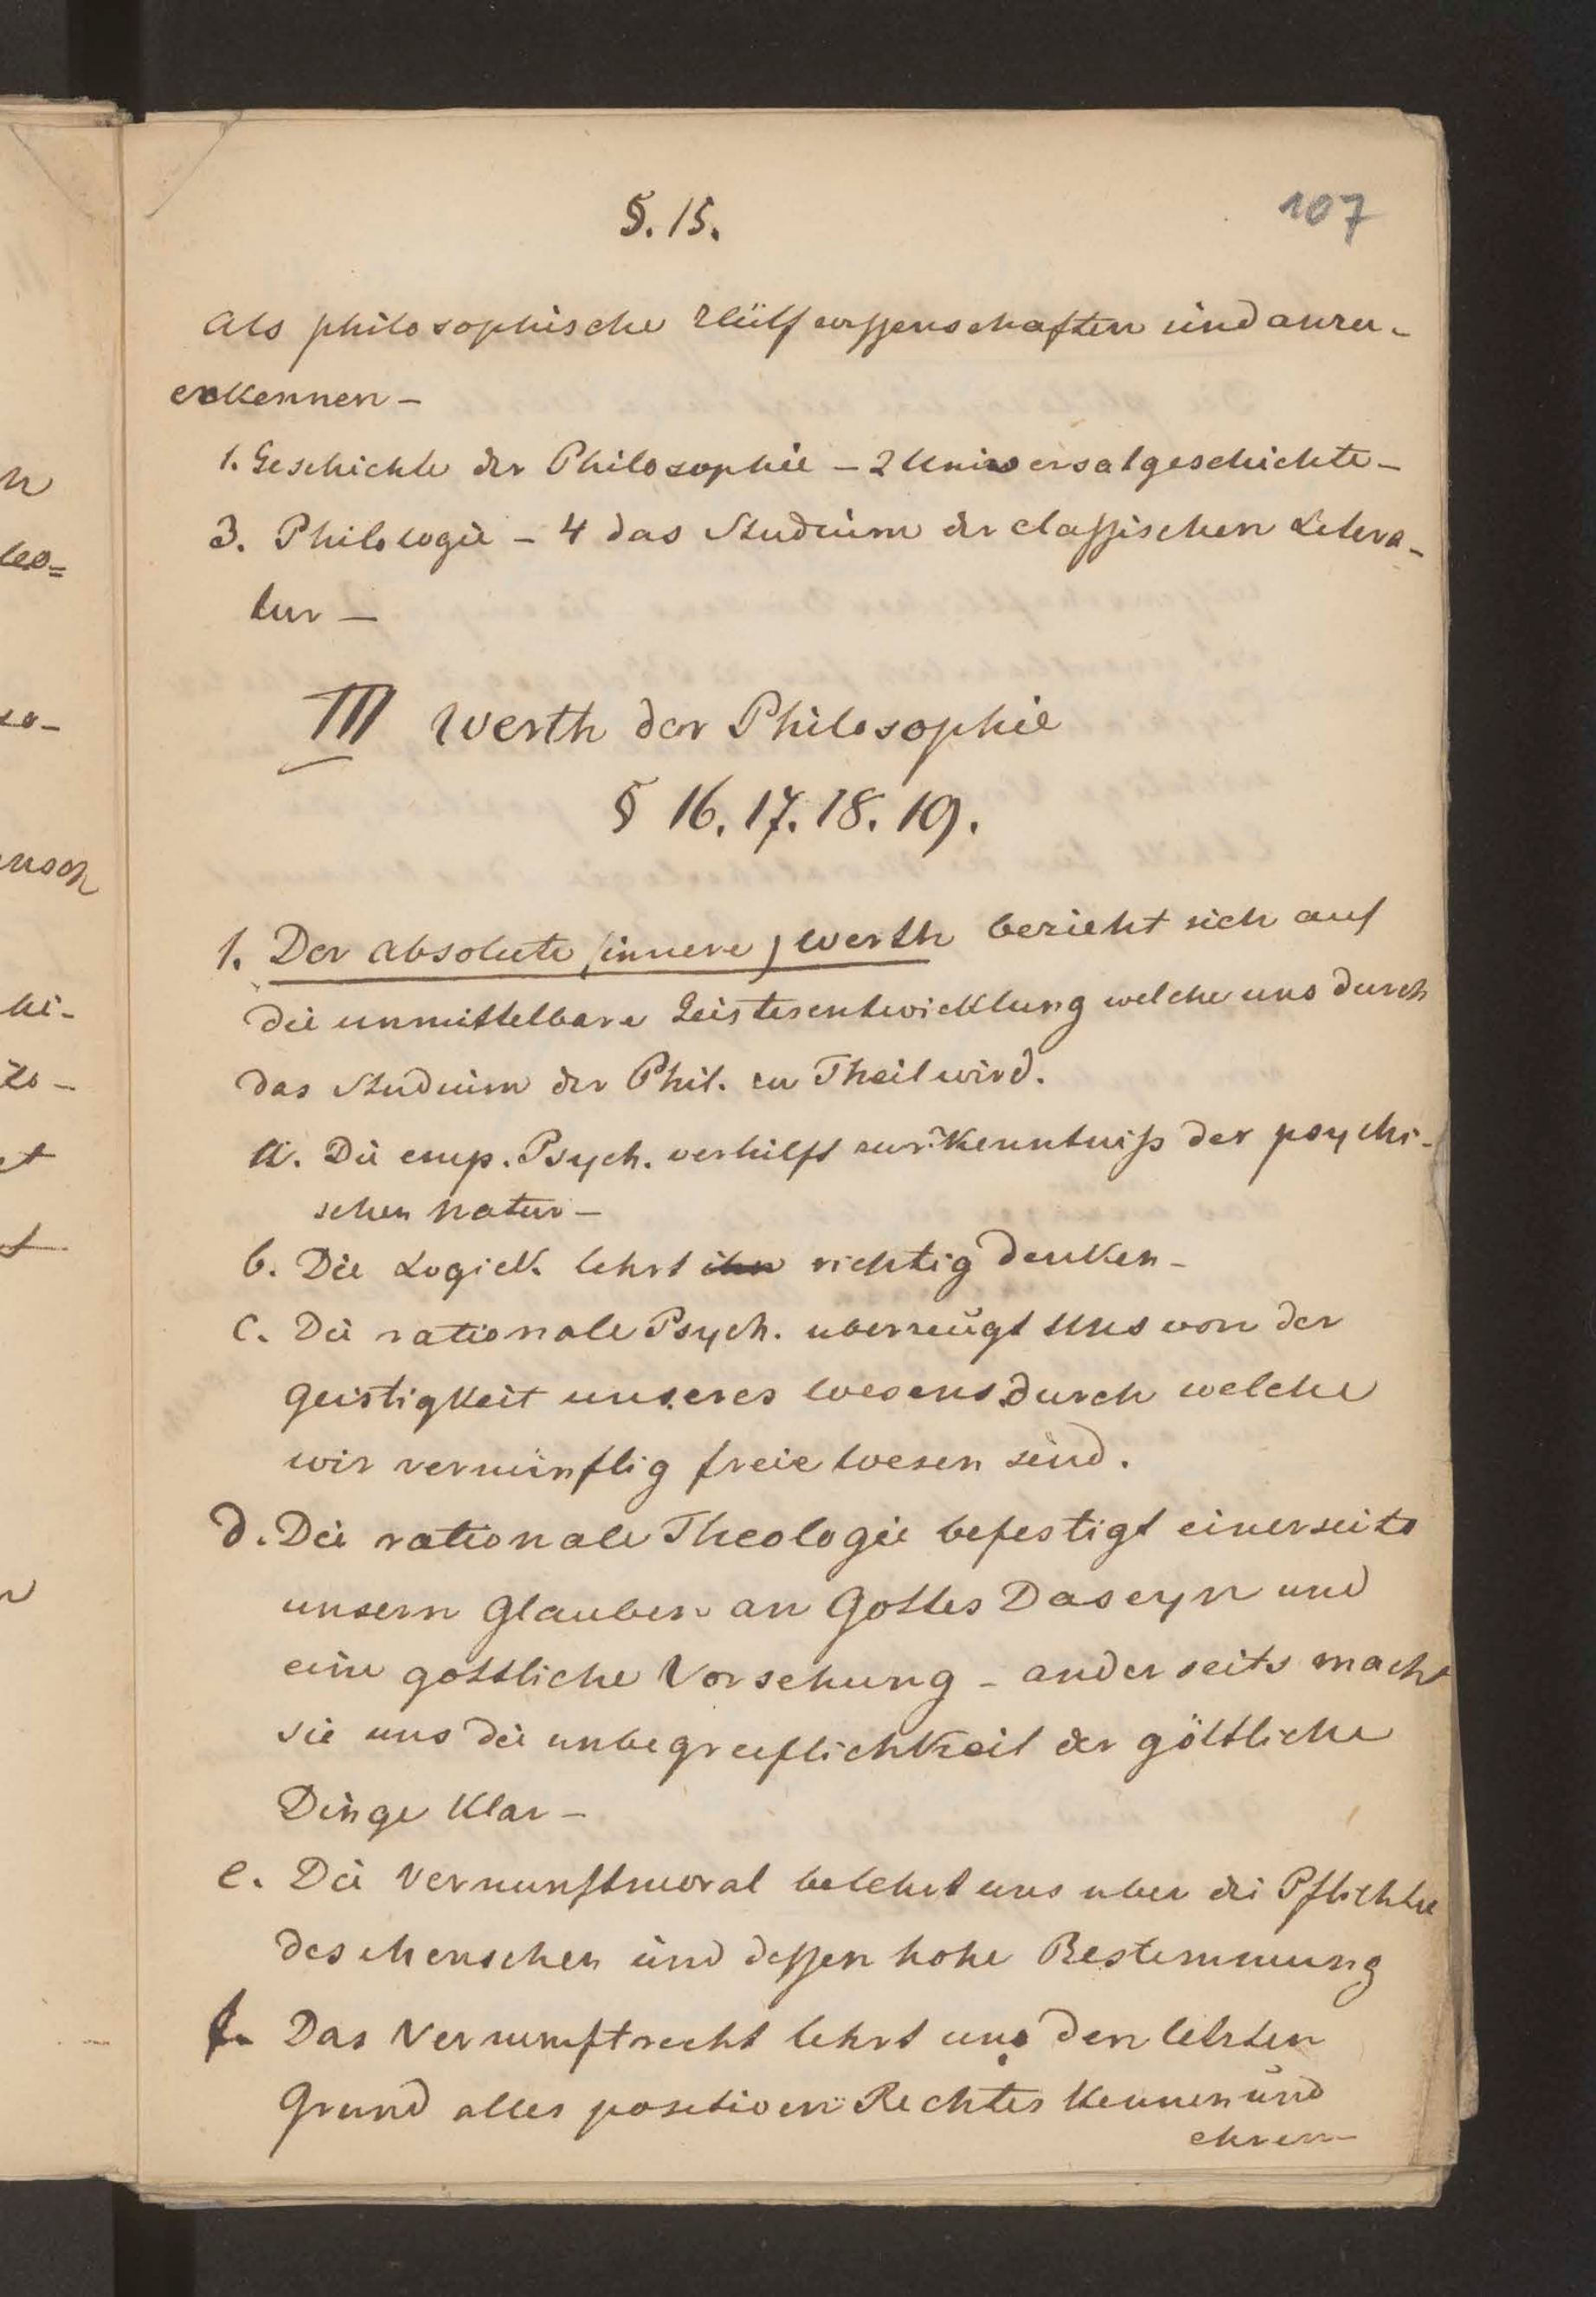 §. 15.
107
Als philosophische Hülfswissenschaften sind anzu-
erkennen –
1. Geschichte der Philosophie – 2 Universalgeschichte –
3. Philologie – 4 das Studium der classischen Litera-
tur –
III Werth der Philosophie
§ 16. 17. 18. 19.
1. Der absolute (innere) Werth bezieht sich auf
die unmittelbare Geistesentwicklung welche uns durch
das Studium der Phil. zu Theil wird.
a. Die emp. Psych. verhilft zur Kenntniß der psychi-
schen Natur –
b. Die Logick. lehrt ihn richtig denken –
c. Die rationale Psych. uberzeugt uns von der
Geistigkeit unseres Wesens durch welche
wir vernünftig freie Wesen sind.
d. Die rationale Theologie befestigt einerseits
unsern Glauben an Gottes Daseyn und
eine gottliche Vorsehung – anderseits macht
sie uns die unbegreiflichkeit der göttliche
Dinge klar –
e. Die Vernunftmoral belehrt uns uber die Pflichte
des Menschen und dessen hohe Bestimmung
f. Das Vernunftrecht lehrt uns den letzten
Grund alles positiven Rechtes kennen und
ehren –